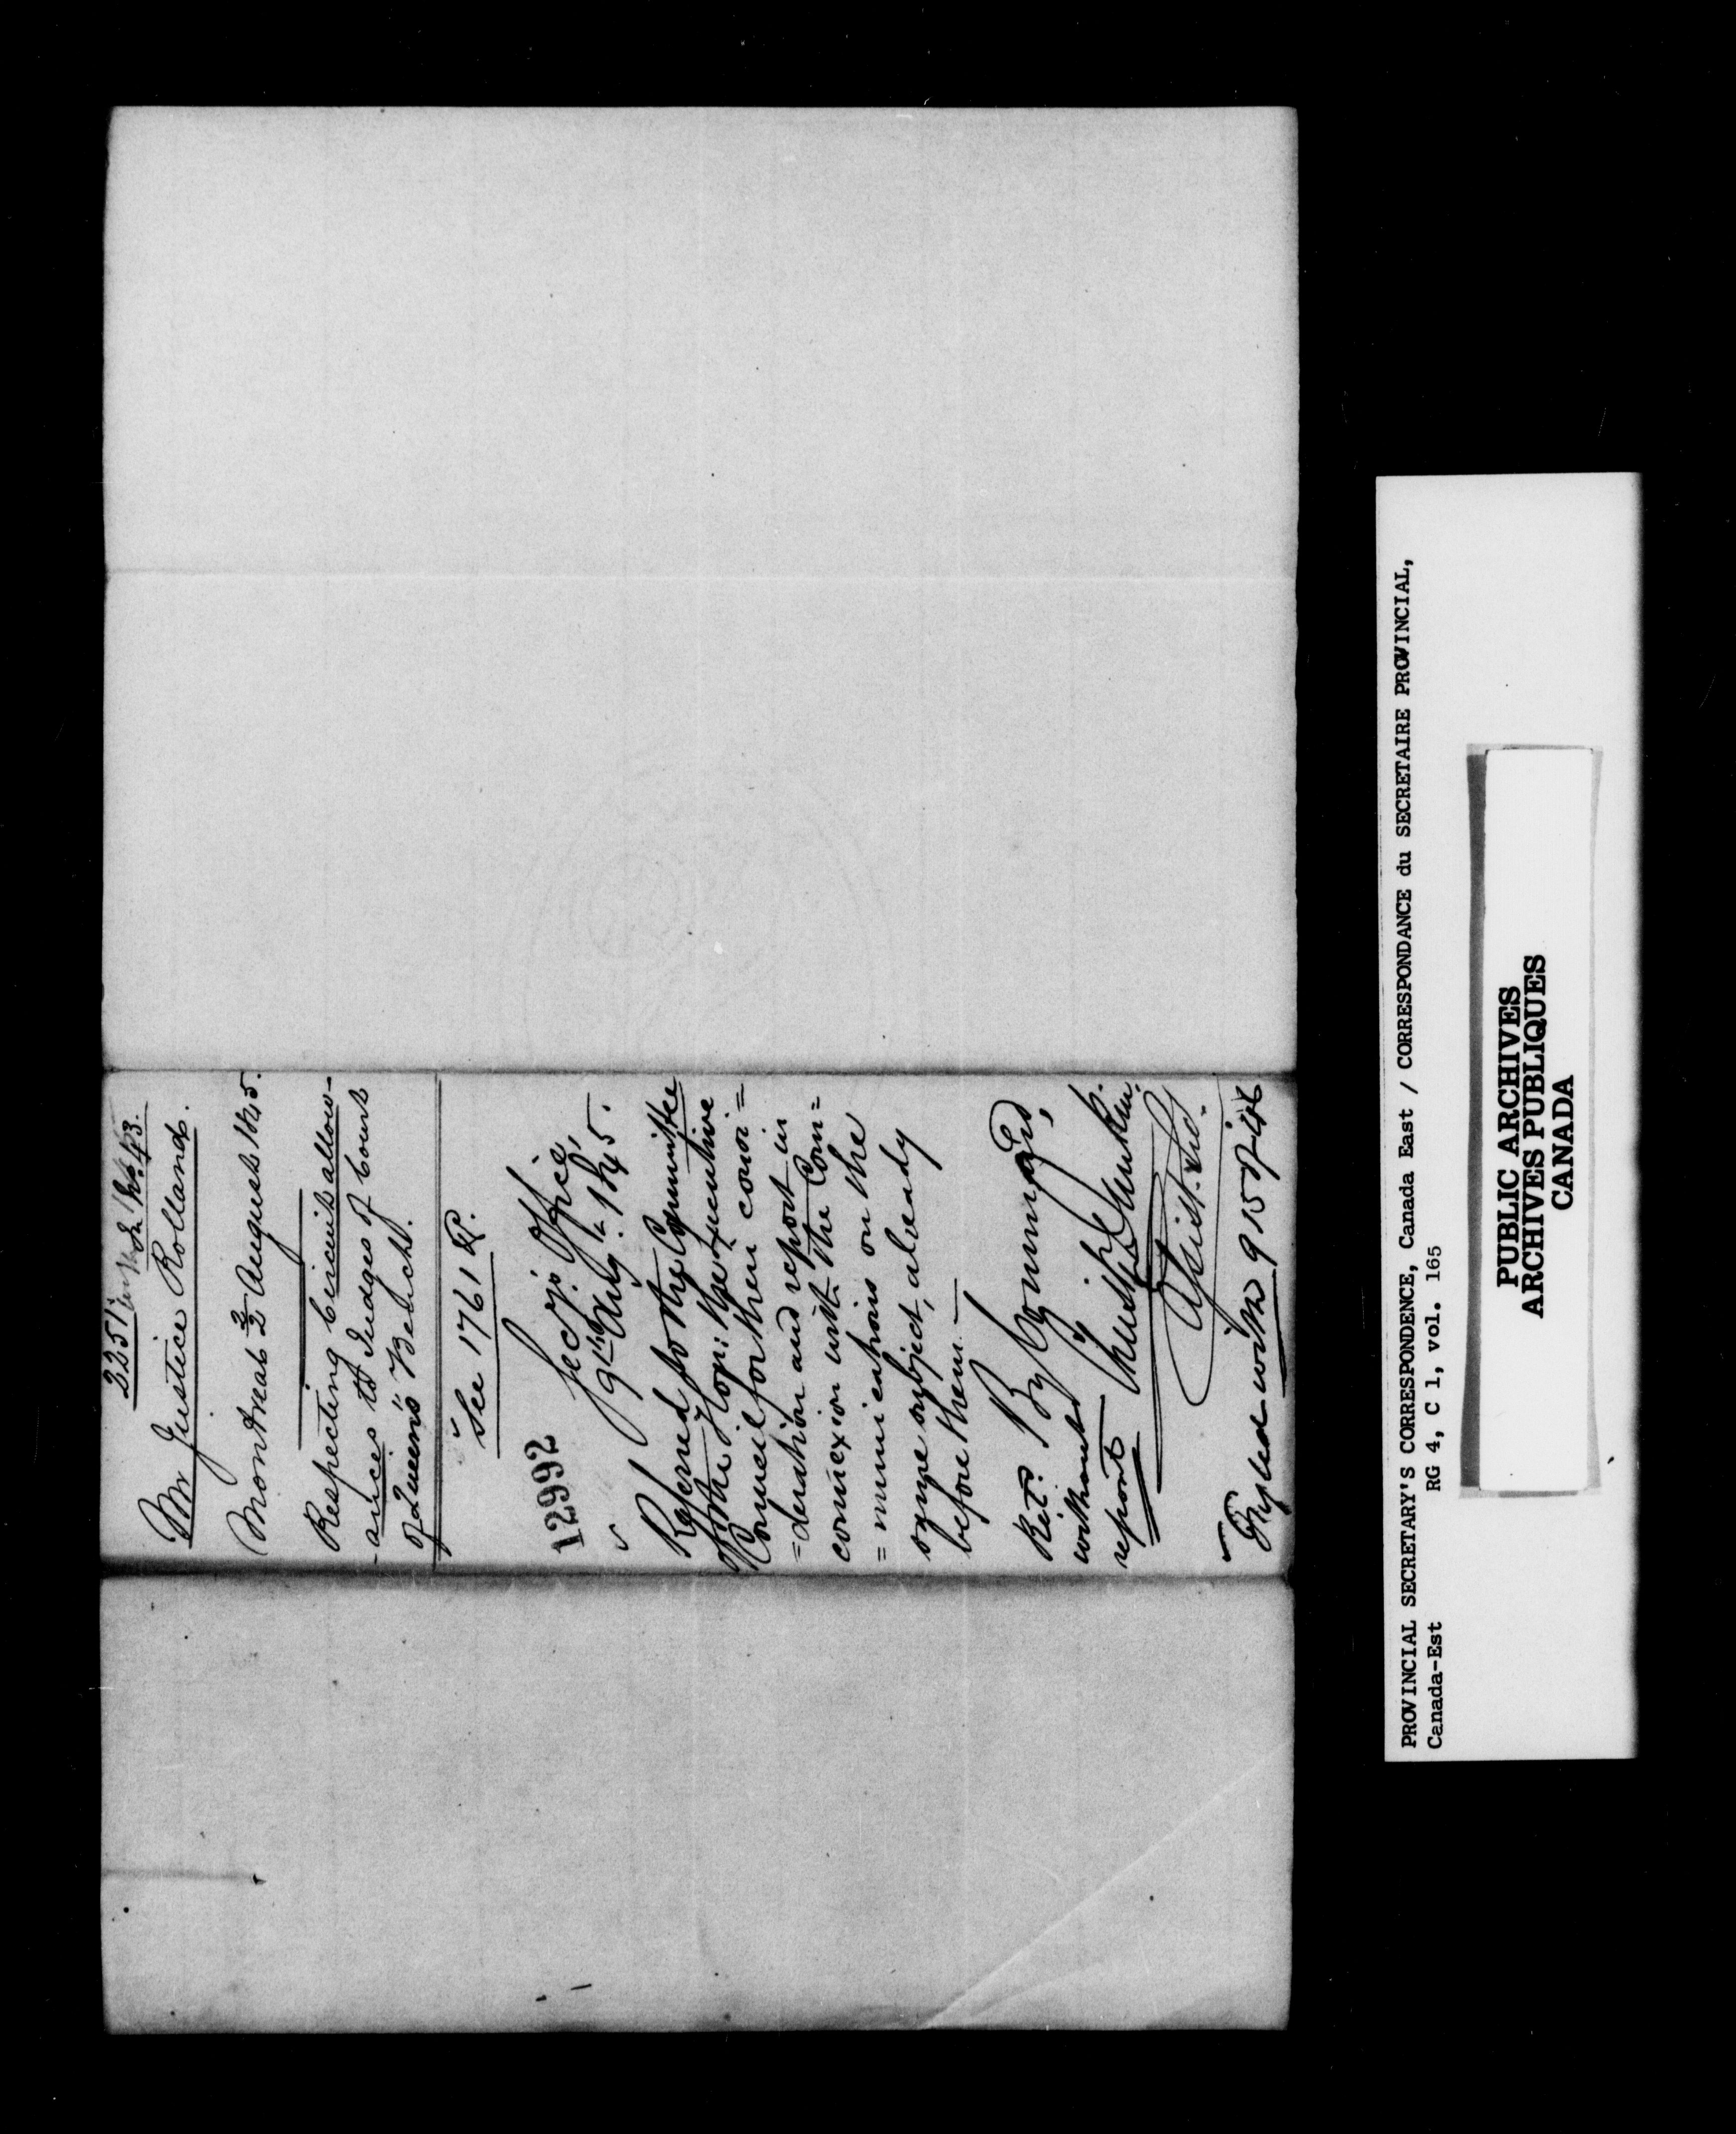 2251
Mr Justice Rolland.
Montreal 2 August 1845.
Respecting Circuit allow-
-ances to Judges of Court
of Queen's Bench.
See 1761
12992
Secy's Office,
9th Augt 1845.
Referred to the Committee
of the Hon: the Executive
Council for their consi=
=deration and report in
connexion with the Com=
=munications on the
same subject, already
before them.—
By Command,
Retd.
without
report
Asist. Secy.
Fyled with 915 of 46
PROVINCIAL SECRETARY'S CORRESPONDENCE, Canada East / CORRESPONDANCE du SECRETAIRE PROVINCIAL,
Canada-Est RG 4, C 1, vol. 165
PUBLIC ARCHIVES
ARCHIVES PUBLIQUES
CANADA